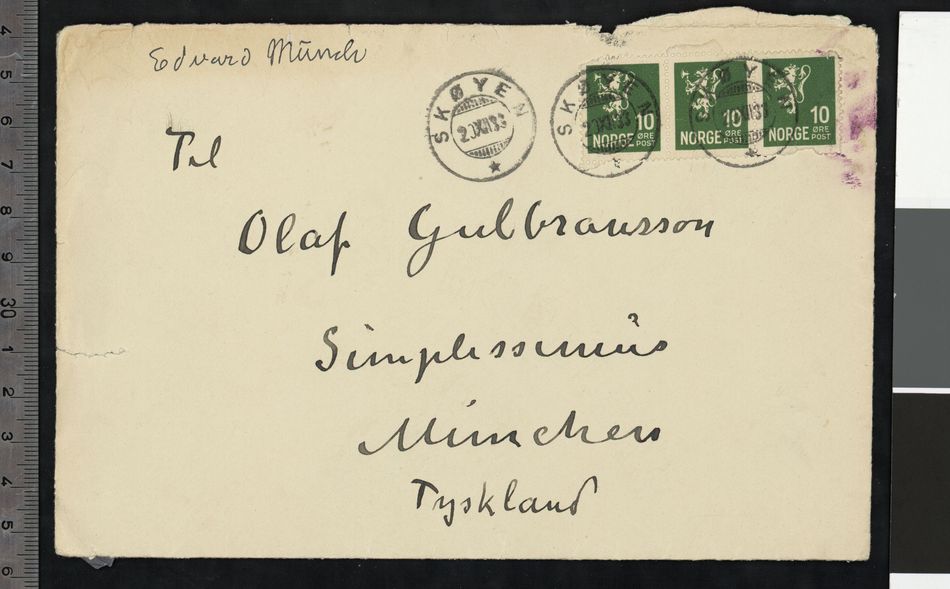 Edvard Münch
SKØYEN
SKØYEN
SKØYEN
10
NORGE ØRE POST
10
NORGE ØRE POST
10
NORGE ØRE POST
Til
Olaf Gulbransson
Simplissimus
München
Tyskland
4
5
6
7
8
9
30
1
2
3
4
5
6